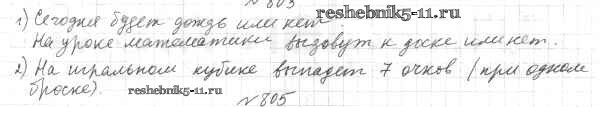 № 803
reshebnik5-11.ru
1) Сегодня будет дождь или нет.
На уроке математики вызовут к доске или нет.
2) На игральном кубике выпадет 7 очков (при одном
броске).
reshebnik5-11.ru
№ 805